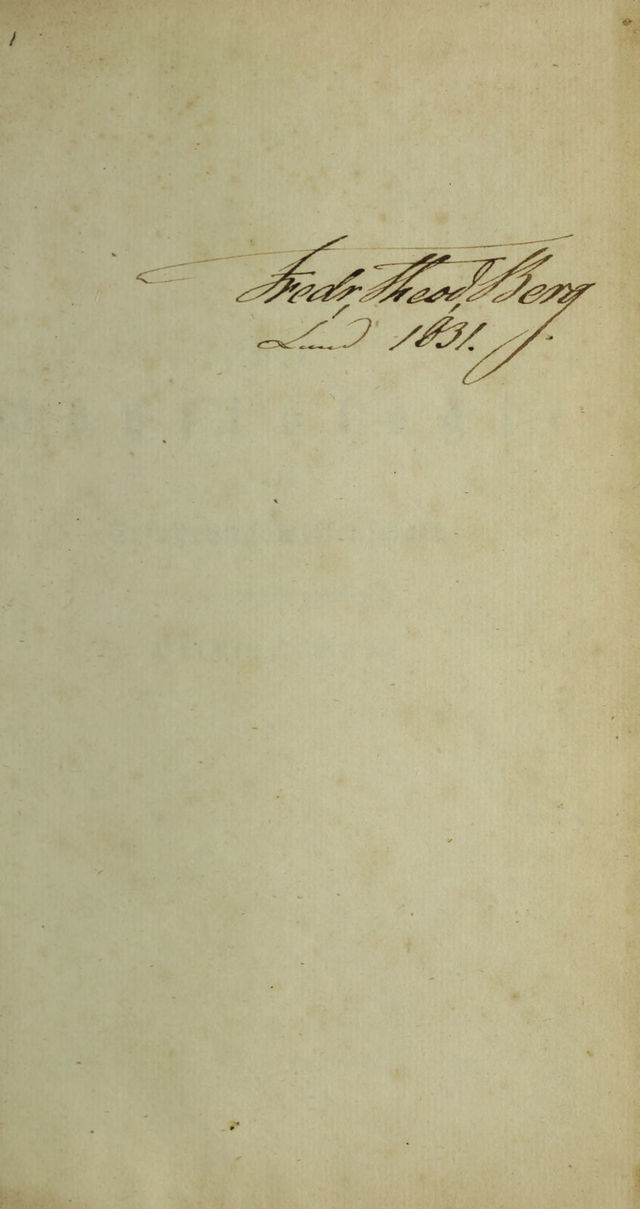 Fredr. Theod. Berg
Lund 1831.